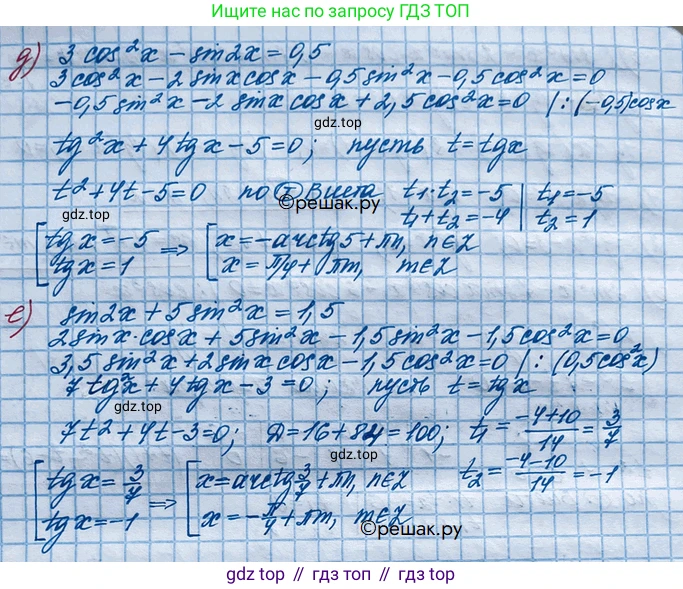 Ищите нас по запросу ГДЗ ТОП
д) 3 cos²x − sin2x = 0,5
3 cos²x − 2 sinx cosx − 0,5 sin²x − 0,5 cos²x = 0
−0,5 sin²x − 2 sinx cosx + 2,5 cos²x = 0 |: (−0,5)cosx
gdz.top
tg²x + 4 tgx − 5 = 0; пусть t = tgx
t² + 4t − 5 = 0 по Т Виета t₁·t₂ = −5 | t₁ = −5
t₁ + t₂ = −4 | t₂ = 1
gdz.top
©решак.ру
[ tgx = −5 ⇒ [ x = −arctg5 + πn, n∈Z
tgx = 1 x = π/4 + πm, m∈Z
gdz.top
е) sin2x + 5 sin²x = 1,5
2 sinx · cosx + 5 sin²x − 1,5 sin²x − 1,5 cos²x = 0
3,5 sin²x + 2 sinx cosx − 1,5 cos²x = 0 |: (0,5cos²x)
7 tg²x + 4 tgx − 3 = 0; пусть t = tgx
gdz.top
7t² + 4t − 3 = 0; D = 16 + 84 = 100; t₁ = (−4+10)/14 = 3/7
t₂ = (−4−10)/14 = −1
[ tgx = 3/7 ⇒ [ x = arctg 3/7 + πn, n∈Z
tgx = −1 x = −π/4 + πm, m∈Z
gdz.top
©решак.ру
gdz top // гдз топ // гдз.top